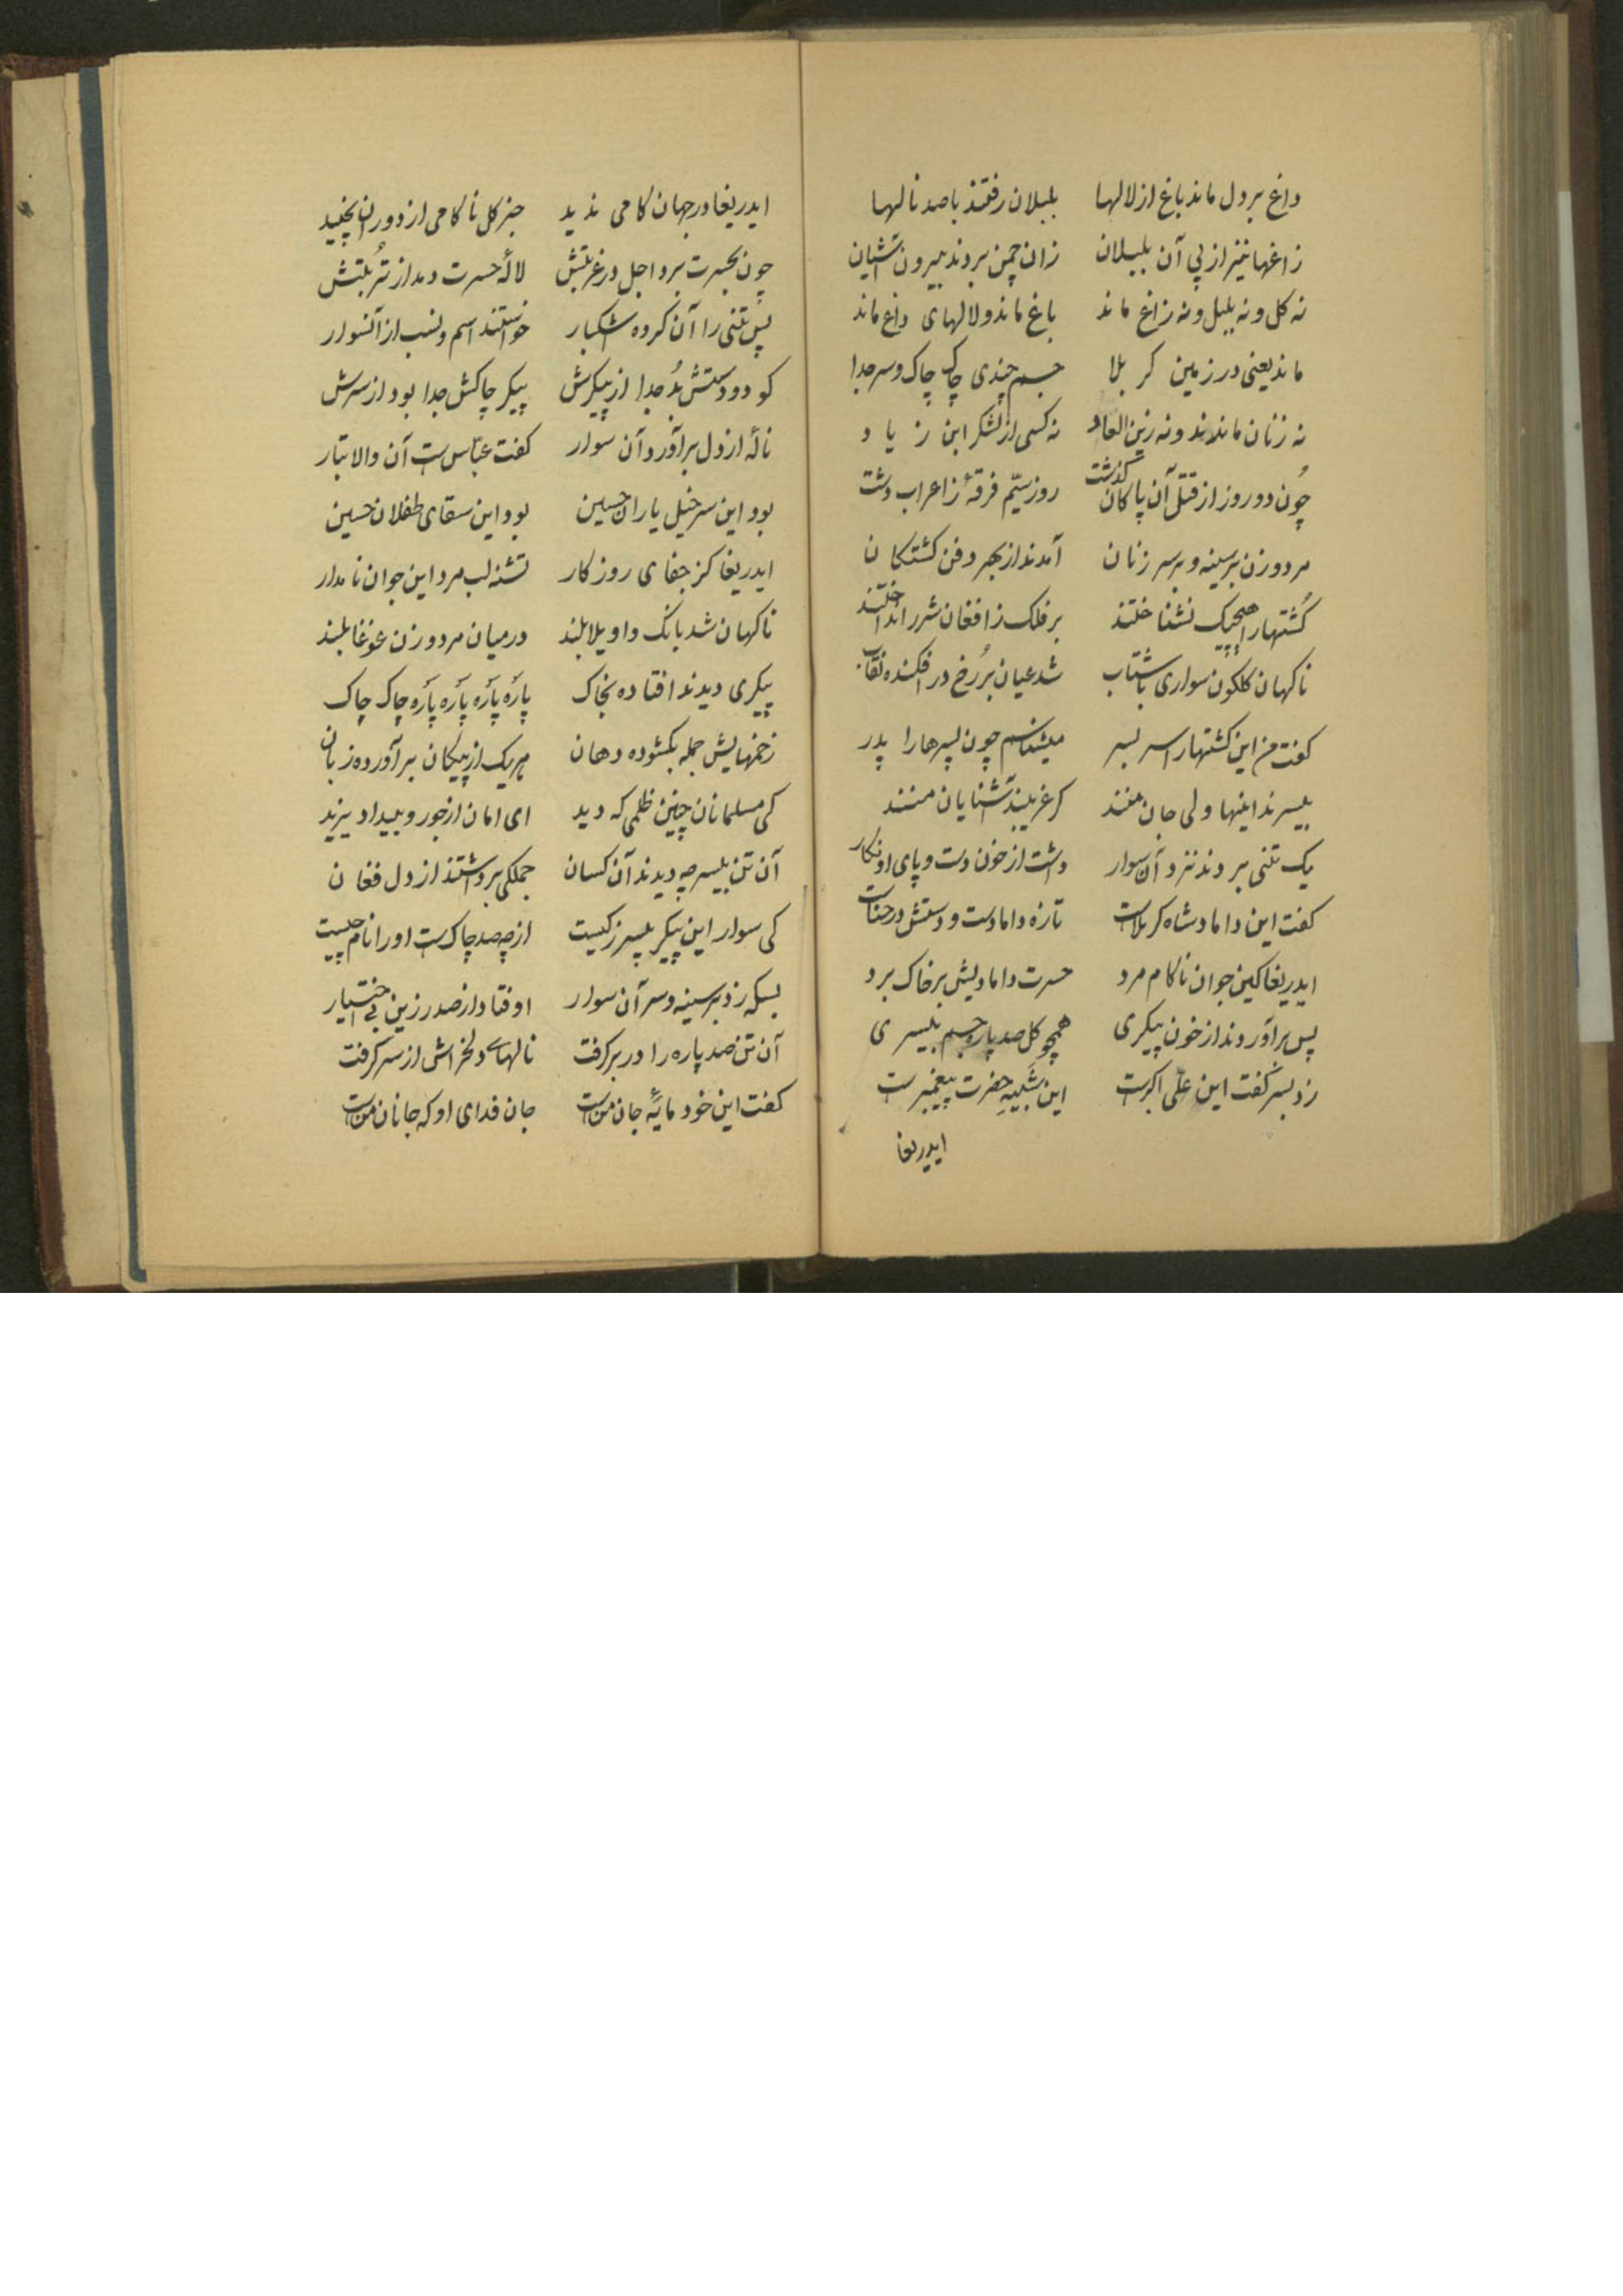 داغ بر دل ماند باغ از لالها بلبلان رفتند با صد نالها
زاغها نیز از پی آن بلبلان زان چمن بردند بیرون آشیان
نه کل و نه بلبل و نه زاغ ماند باغ ماند و لالهای داغ ماند
ماند یعنی در زمین کربلا جسم چندی چاک چاک و سر جدا
نه زنان ماندند و نه زین العباد نه کسی از لشکر ابن زیاد
چون دو روز از قتل آن پاکان کذشت روز سیّم فرقهٔ ز اعراب دشت
مرد و زن بر سینه و بر سر زنان آمدند از بهر دفن کشتکان
کُشتها را هیچیک نشناختند بر فلک ز افغان شرر انداختند
ناکهان کلکون سواری با شتاب شد عیان بر رُخ در افکنده نقاب
کفت من این کشتها را سر بسر میشناسم چون پسرها را پدر
بیسرند اینها ولی جان منند کر غریبند آشنایان منند
یک تنی بردند نزد آن سوار داشت از خون دست و پای او نکار
کفت این داماد شاه کربلاست تازه دامادست و دستش در حناست
ایدریغا کین جوان ناکام مرد حسرت دامادیش بر خاک برد
پس بر آوردند از خون پیکری همچو کل صد پاره جسم بیسری
زد بسر کفت این علّی اکبرست این شَبیهِ حضرت پیغمبرست
ایدریغا
ایدریغا در جهان کامی ندید جز کل ناکامی از دوران نچید
چون بحسرت برد اجل در غربتش لالهٔ حسرت دمد از تُربتش
پس تنی را آن کروه اشکبار خواستند اسم و نسب از آنسوار
کو دو دستش بُد جدا از پیکرش پیکر چاکش جدا بود از سرش
نالهٔ از دل بر آورد آن سوار کفت عبّاس ست آن والا تبار
بود این سرخیل یاران حسین بود این سقای طفلان حسین
ایدریغا کز جفای روزکار تشنه لب مرد این جوان نامدار
ناکهان شد بانک واویلا بلند در میان مرد و زن غوغا بلند
پیکری دیدند افتاده بخاک پاره پاره پاره پاره چاک چاک
زخمهایش جمله بکشوده دهان هر یک از پیکان بر آورده زبان
کی مسلمانان چنین ظلمی که دید ای امان از جور و بیداد یزید
آن تن بیسر چه دیدند آن کسان جملکی برداشتند از دل فغان
کی سوار این پیکر بیسر ز کیست از چه صد چاک ست او را نام چیست
بسکه زد بر سینه و سر آن سوار اوفتاد از صدر زین بی اختیار
آن تن صد پاره را در بر کرفت نالهای دلخراش از سر کرفت
کفت این خود مایهٔ جان منست جان فدای او که جانان منست